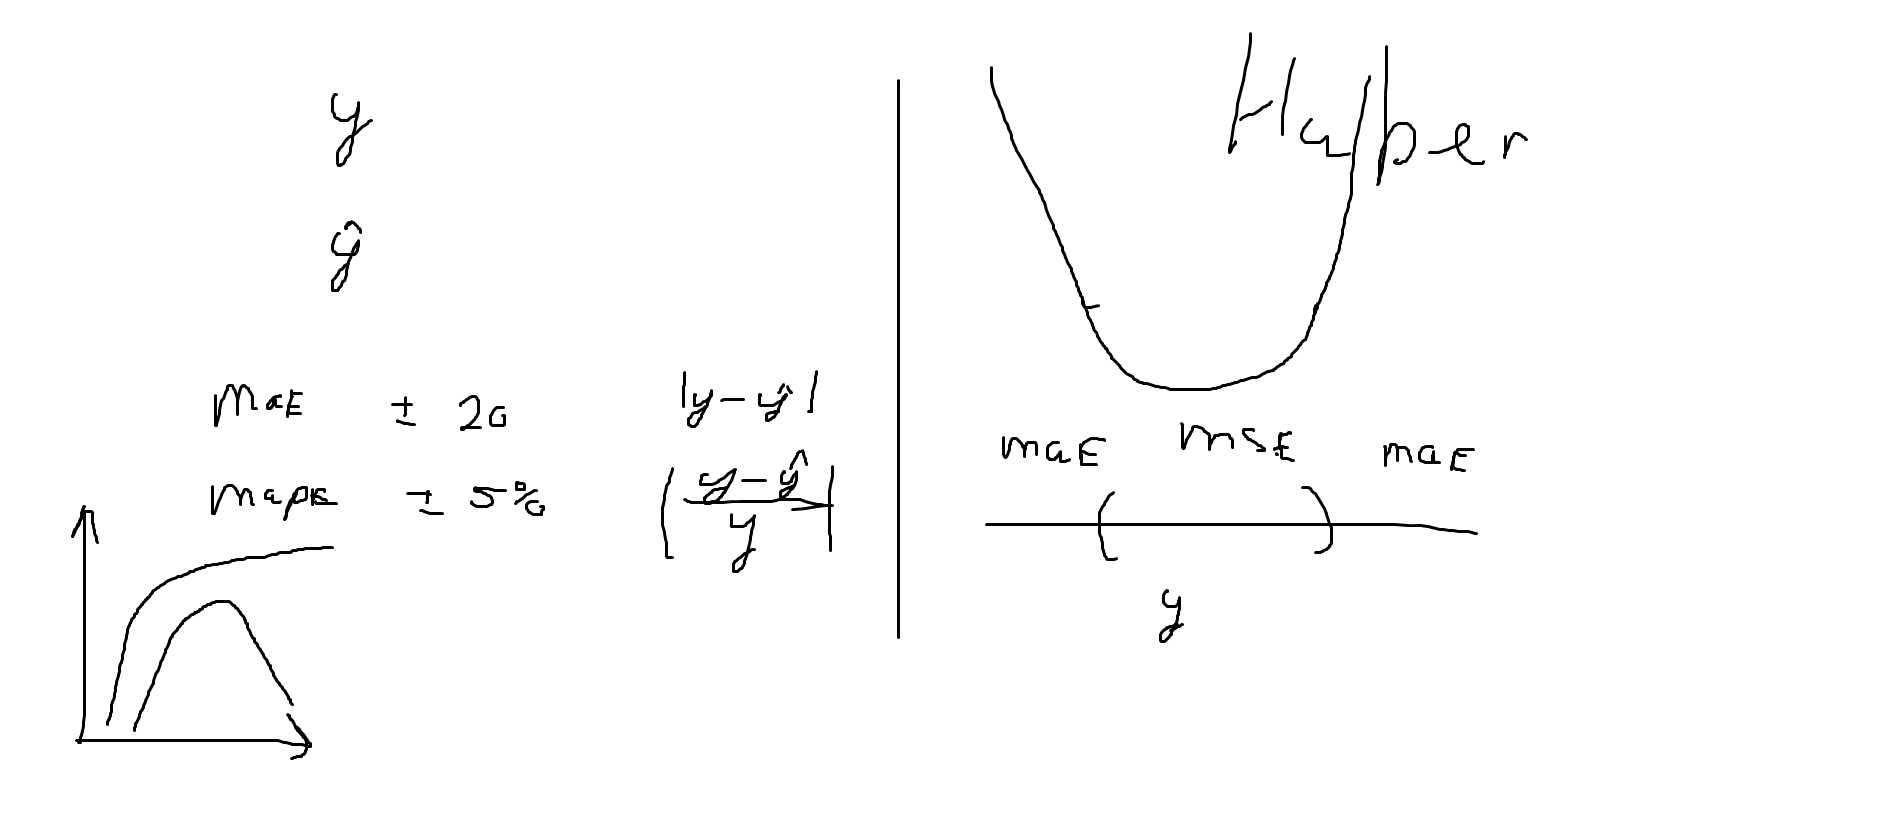 y
ŷ
MaE ± 20 |y-ŷ|
mape ± 5% |y-ŷ / y|
Huber
maE mSE maE
( )
y